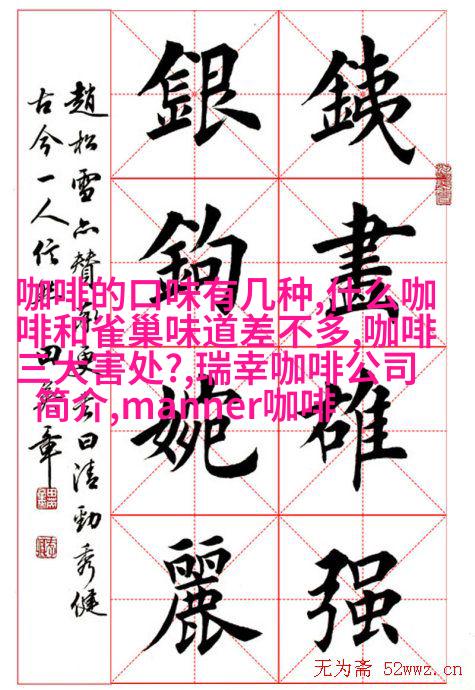 咖啡的口味有几种,什么咖
啡和雀巢味道差不多,咖啡
三大害处?,瑞幸咖啡公司
简介,manner咖啡
銕畫雄强
銀鉤婉麗
趙松雪亦贊曰清勁秀健
古今一人信田章
无为斋 52wwz.cn